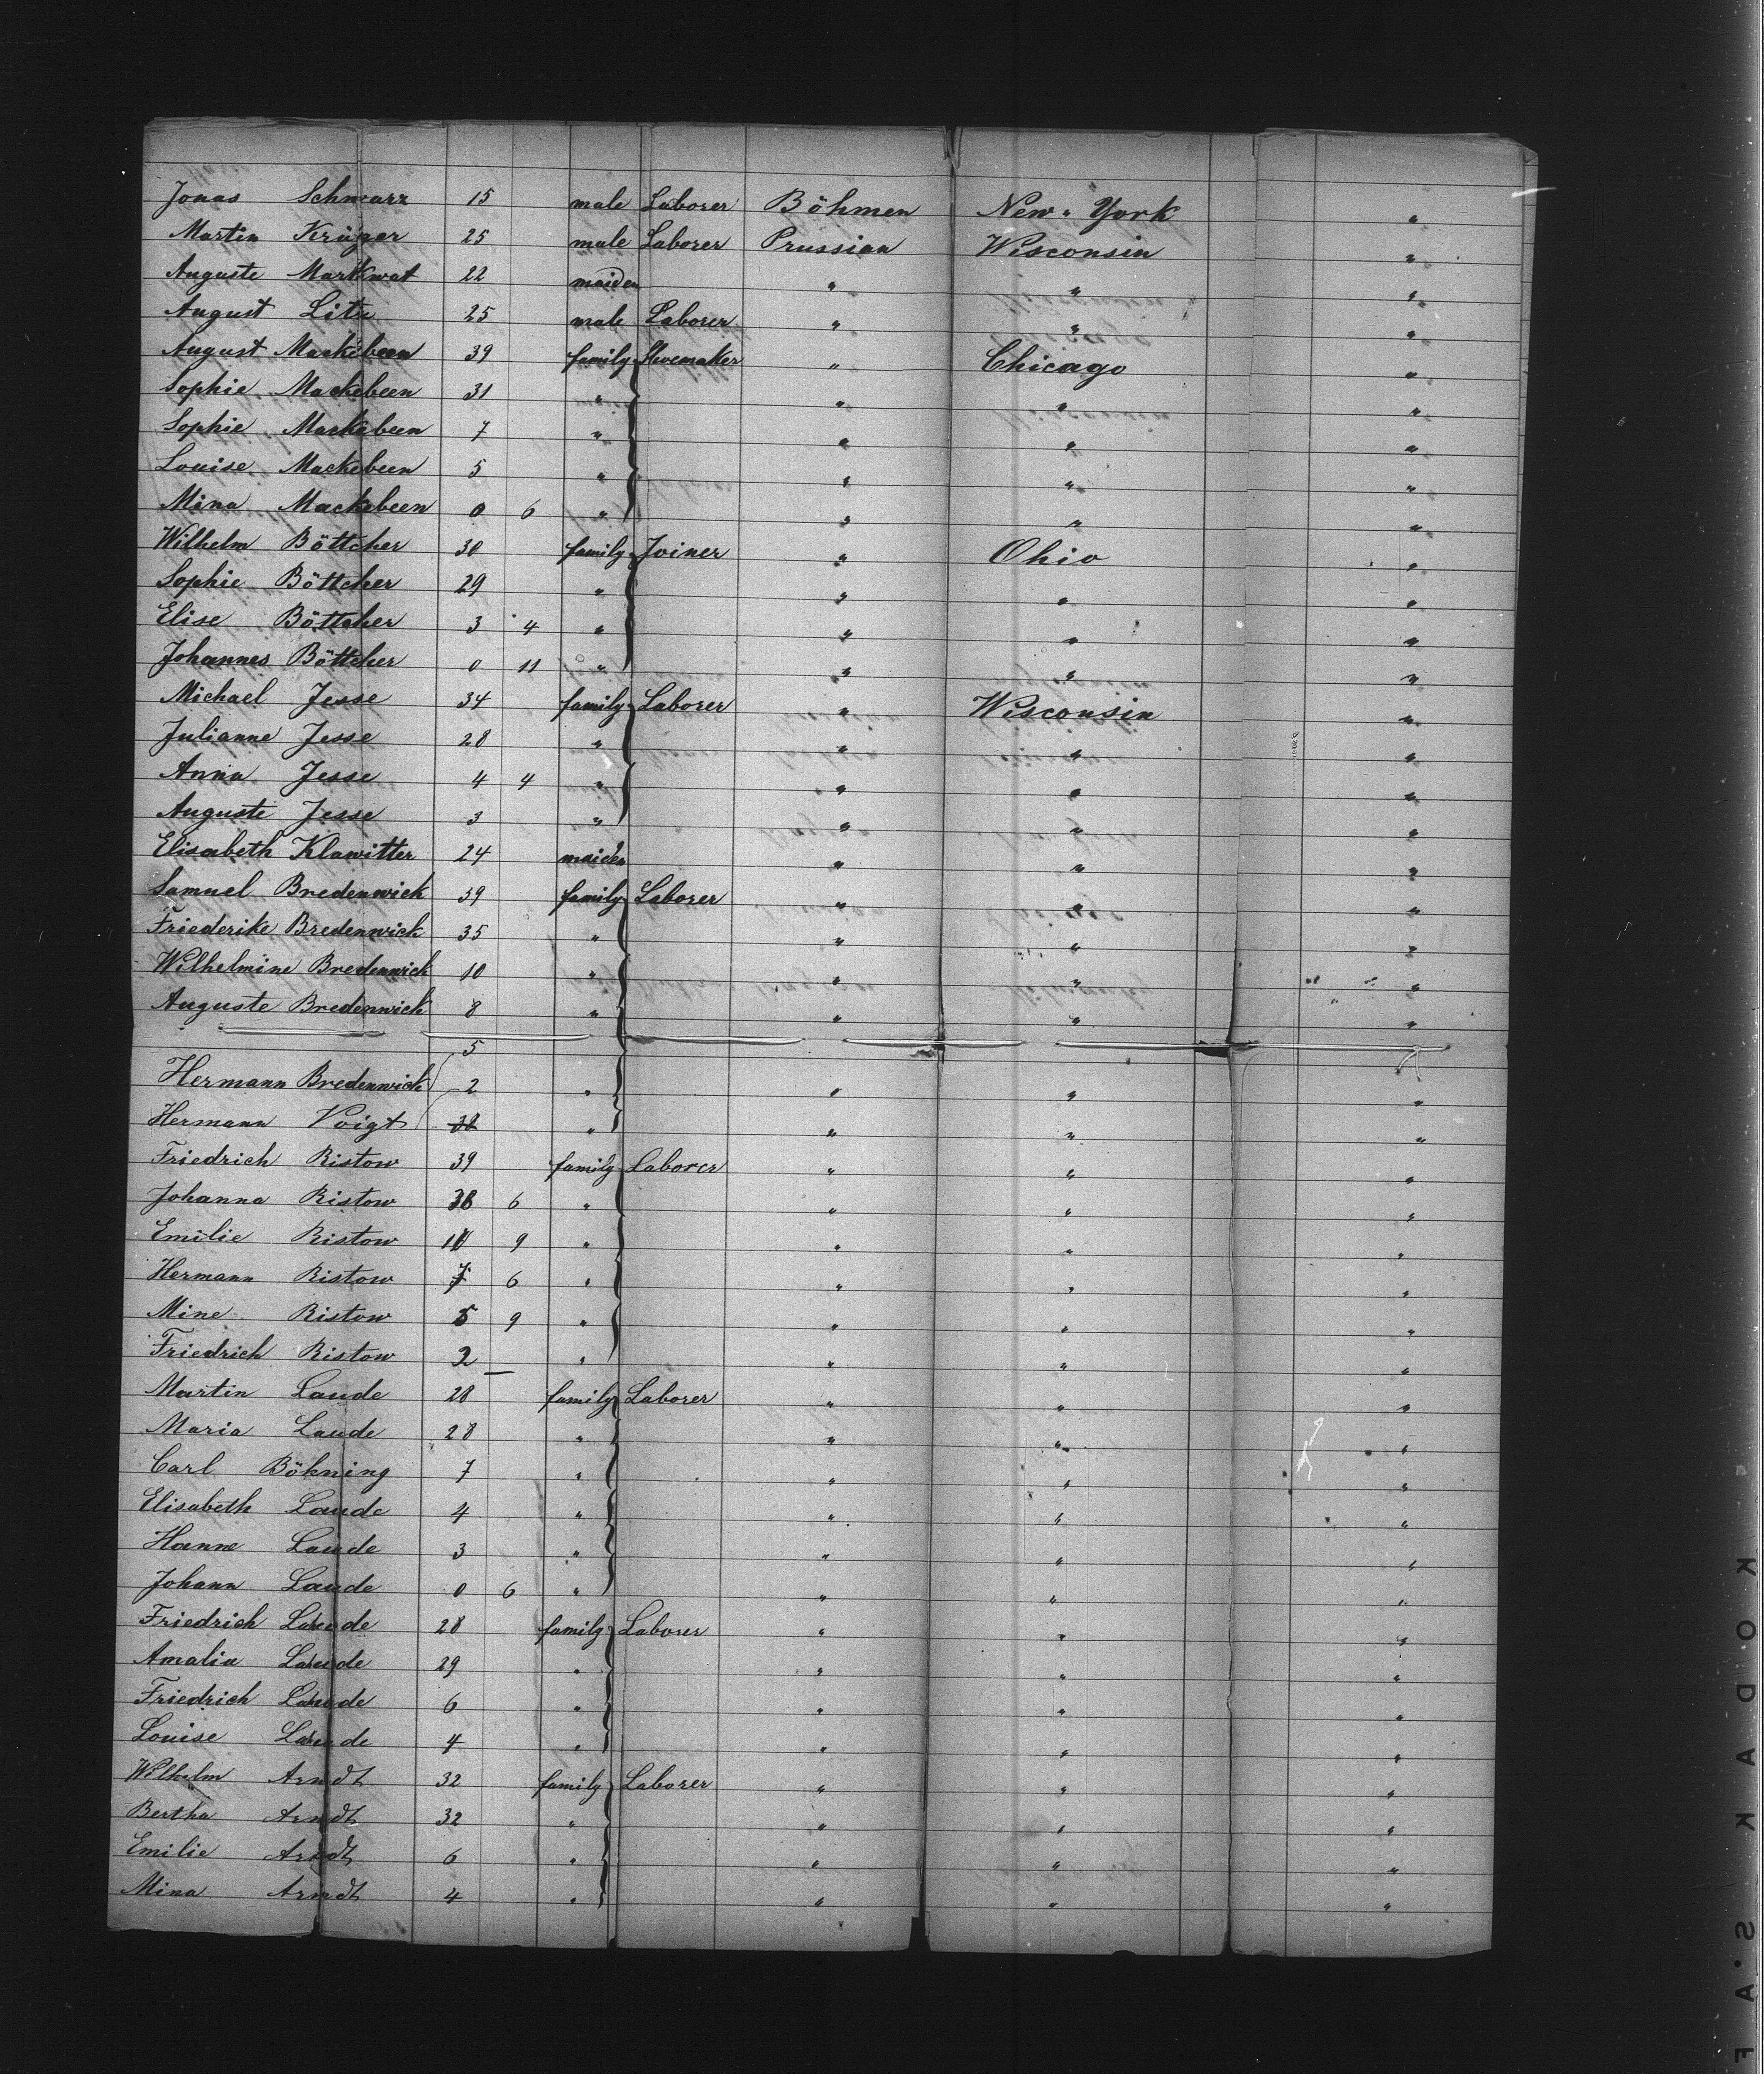 Jonas Schwarz 15 male Laborer Böhmen New-York "
Martin Krüger 25 male Laborer Prussian Wisconsin "
Auguste Markwat 22 maiden " " "
August Litz 25 male Laborer " " "
August Mackebeen 39 family Shoemaker " Chicago "
Sophie Mackebeen 31 " " " "
Sophie Mackebeen 7 " " " "
Louise Mackebeen 5 " " " "
Mina Mackebeen 0 6 " " " "
Wilhelm Böttcher 30 family Joiner " Ohio "
Sophie Böttcher 29 " " " "
Elise Böttcher 3 4 " " " "
Johannes Böttcher 0 11 " " " "
Michael Jesse 34 family Laborer " Wisconsin "
Julianne Jesse 28 " " " "
Anna Jesse 4 4 " " " "
Auguste Jesse 3 " " " "
Elisabeth Klawitter 24 maiden " " "
Samuel Bredenwick 39 family Laborer " " "
Friederike Bredenwick 35 " " " "
Wilhelmine Bredenwick 10 " " " "
Auguste Bredenwick 8 " " " "
5
Hermann Bredenwick 2 " " " "
Hermann Voigt " " " "
Friedrich Ristow 39 family Laborer " " "
Johanna Ristow 38 6 " " " "
Emilie Ristow 9 " " " "
Hermann Ristow 7 6 " " " "
Mine Ristow 5 9 " " " "
Friedrich Ristow 2 " " " "
Martin Laude 28 family Laborer " " "
Maria Laude 28 " " " "
Carl Bökning 7 " " " "
Elisabeth Laude 4 " " " "
Hanne Laude 3 " " " "
Johann Laude 0 6 " " " "
Friedrich Laude 28 family Laborer " " "
Amalia Laude 29 " " " "
Friedrich Laude 6 " " " "
Louise Laude 4 " " " "
Wilhelm Arndt 32 family Laborer " " "
Bertha Arndt 32 " " " "
Emilie Arndt 6 " " " "
Mina Arndt 4 " " " "
KODAK S.A F